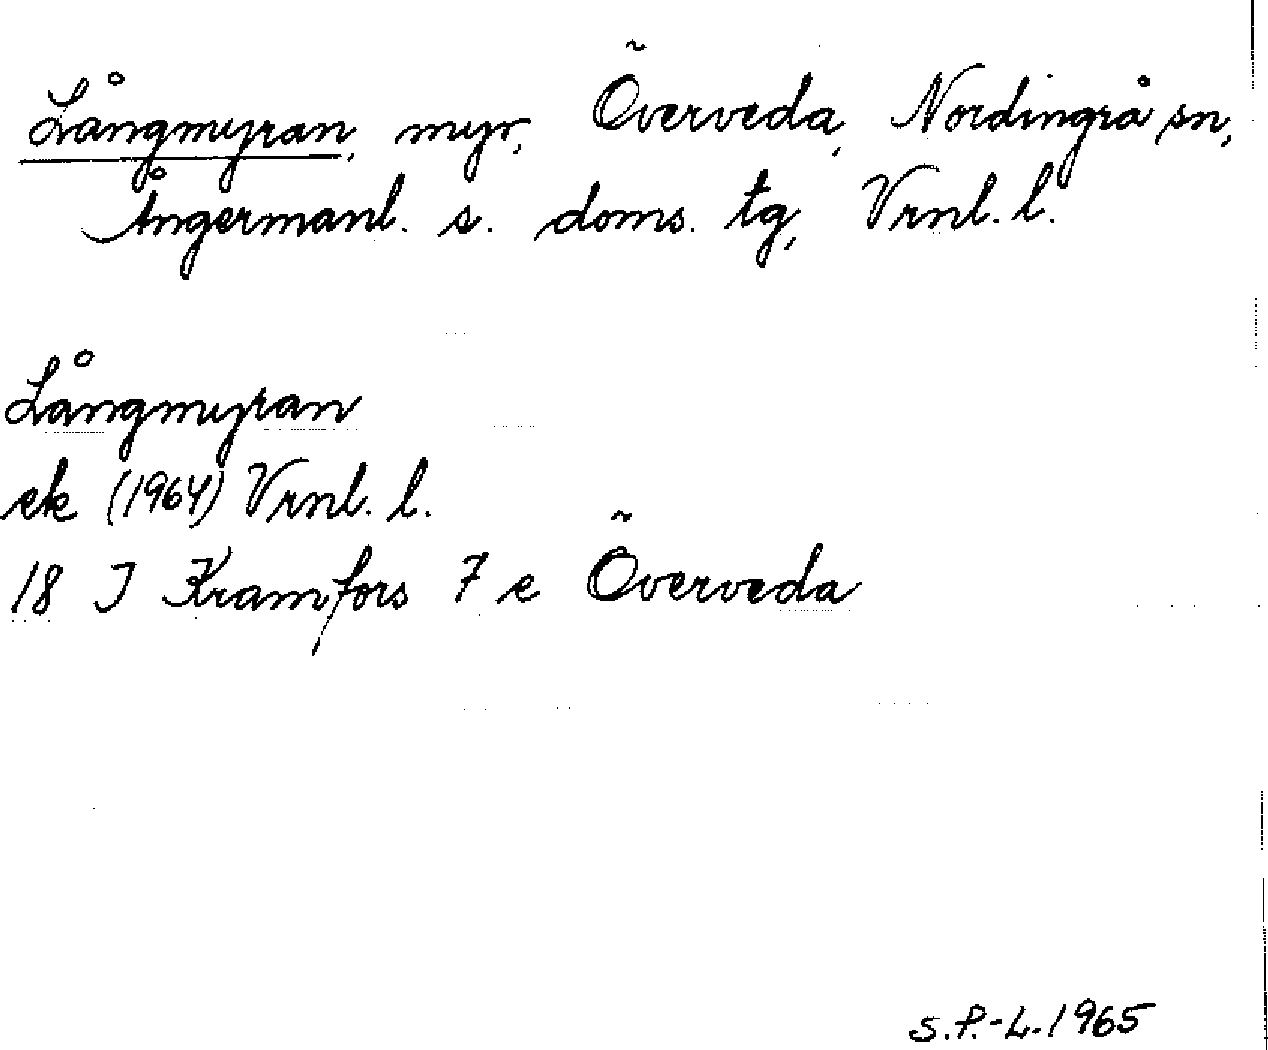 Långmyran, myr, Överveda, Nordingrå sn,
Ångermanl. s. doms. tg, Vrnl. l.
Långmyran
ek (1964) Vrnl. l.
18 I Kramfors 7 e Överveda
S.P.-L. 1965